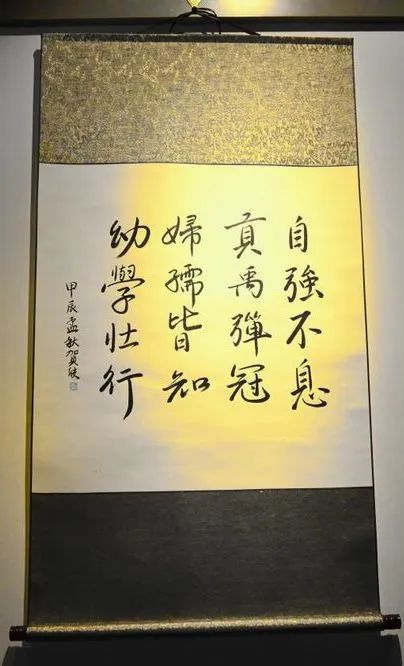 自強不息
貢禹彈冠
婦孺皆知
幼學壯行
甲辰孟秋賀欣